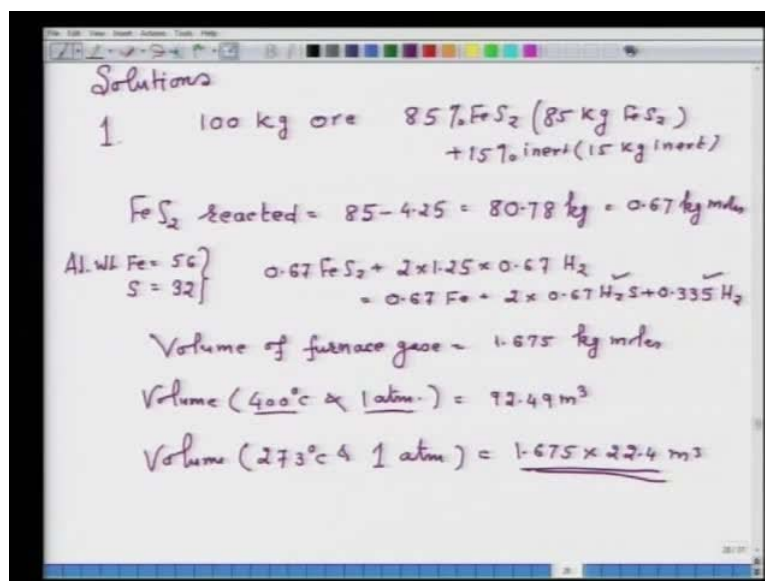 File Edit View Insert Actions Tools Help
Solutions
1. 100 kg ore 85% FeS2 (85 kg FeS2)
+15% inert (15 kg inert)
FeS2 reacted = 85-4.25 = 80.78 kg = 0.67 kg moles
At. Wt Fe = 56
S = 32
0.67 FeS2 + 2x1.25x0.67 H2
= 0.67 Fe + 2x 0.67 H2S+0.335 H2
Volume of furnace gase = 1.675 kg moles
Volume (400°C & 1 atm.) = 92.49 m3
Volume (273°C & 1 atm) = 1.675 x 22.4 m3